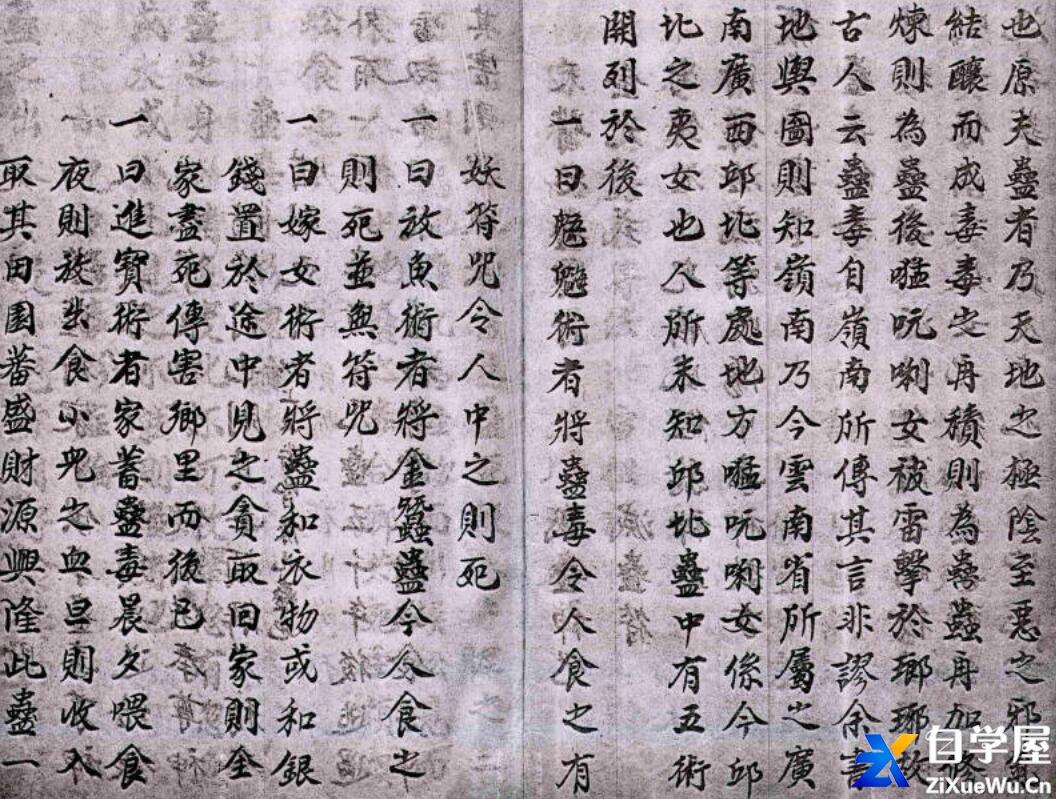 也原夫蠱者乃天地之極陰至惡之邪
結釀而成毒毒之再積則為蠱再加
煉則為蠱後啒吭唎女被雷擊於瑯琊
古人云蠱毒自嶺南所傳其言非謬余
地輿圖則知嶺南乃今雲南省所屬之廣
南廣西邱北等處地方啒吭唎女係今邱
北之夷女也人所未知邱北蠱中有五術
開列於後
一曰魑魅術者將蠱毒令人食之有
妖符咒令人中之則死
一曰放魚術者將金蠶蠱令人食之
則死並無符咒
一曰嫁女術者將蠱和衣物或和銀
錢置於途中見之貪取回家則全
家盡死傳害鄉里而後已
一曰進寶術者家蓄蠱毒晨夕喂食
夜則放出食小兒之血旦則收入
取其田園蕃盛財源興隆此蠱一
自学屋
ZiXueWu.Cn